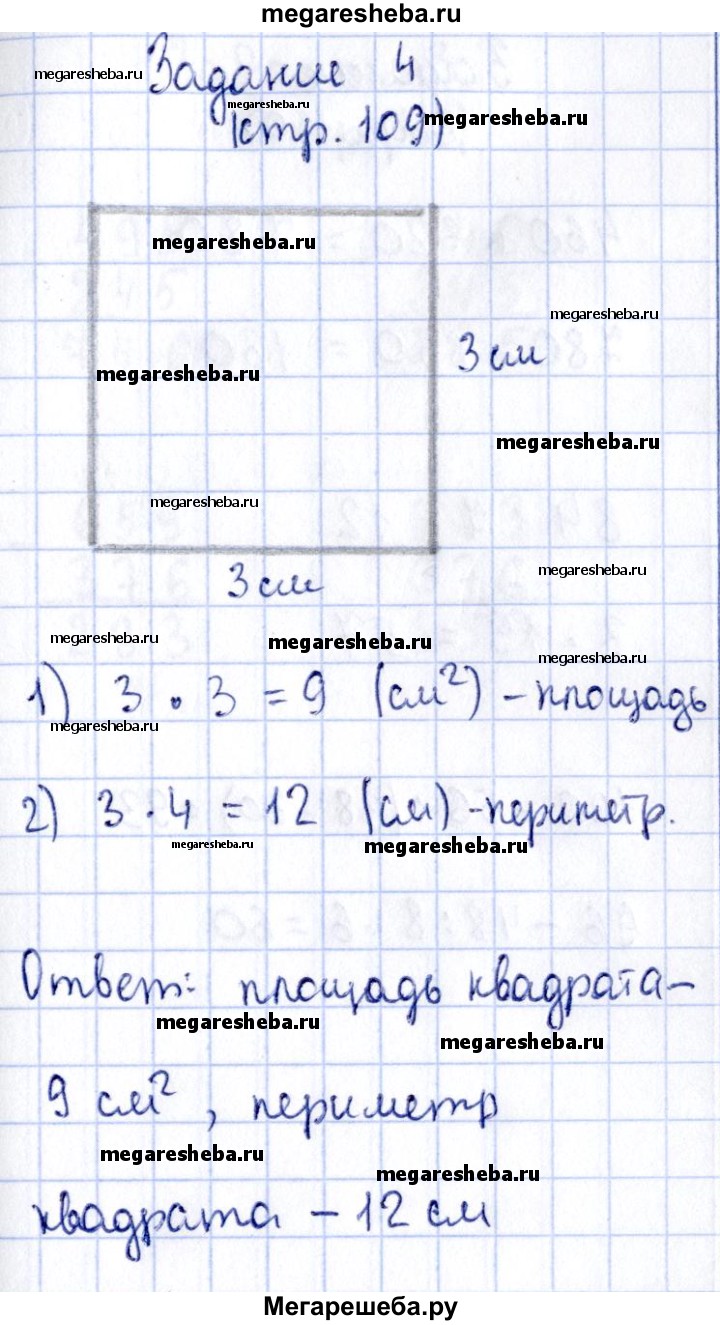 megaresheba.ru
Задание 4
megaresheba.ru
megaresheba.ru
(стр. 109)
megaresheba.ru
megaresheba.ru
megaresheba.ru
3 см
megaresheba.ru
megaresheba.ru
megaresheba.ru
megaresheba.ru
3 см
megaresheba.ru
megaresheba.ru
megaresheba.ru
1) 3 · 3 = 9 (см²) - площадь
megaresheba.ru
2) 3 · 4 = 12 (см) - периметр.
megaresheba.ru
megaresheba.ru
Ответ: площадь квадрата -
megaresheba.ru
megaresheba.ru
9 см², периметр
megaresheba.ru
megaresheba.ru
квадрата - 12 см
Мегарешеба.ру